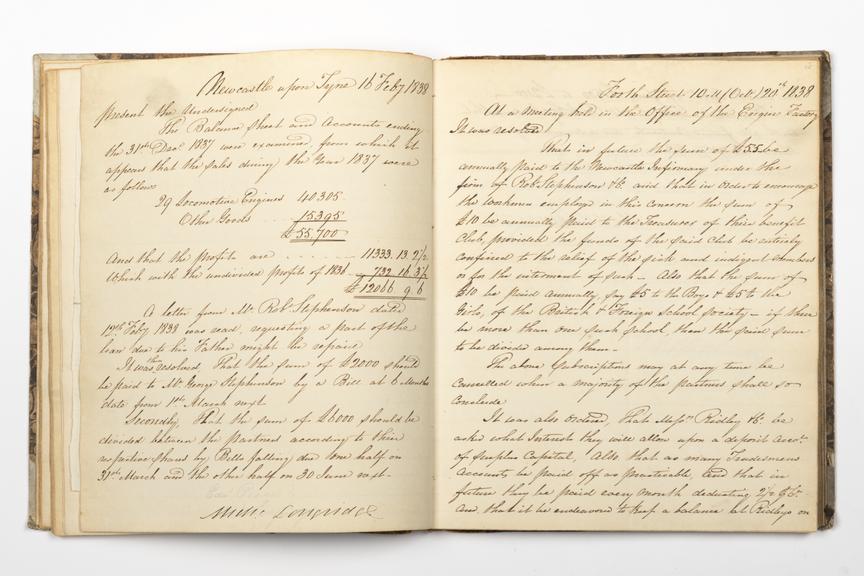 Newcastle upon Tyne 16 Feby 1838
Present the Undersigned
The Balance Sheet and Accounts ending
the 31st Decr 1837 were examined, from which it
appears that the Sales during the Year 1837 were
as follows
29 Locomotive Engines 40305
Other Goods 15395
£55,700
And that the profits are 11333. 13. 2½
Which with the undivided profits of 1836 732 16 3½
£12066. 9. 6
A letter from Mr Robt Stephenson dated
Feby 1838 was read, requesting a part of the
loan due to his Father might be repaid
It was resolved, That the sum of £2000 should
be paid to Mr George Stephenson by a Bill at 6 Months
date from 1st March next
Secondly, That the sum of £6000 should be
divided between the partners according to their
respective shares by Bills falling due one half on
31st March and the other half on 30 June next.
Michl Longridge
Forth Street 10 M (Oct.) 20th 1838
At a Meeting held in the Office of the Engine Factory
It was resolved
That in future the sum of £5.5 be
annually paid to the Newcastle Infirmary under the
firm of Robt Stephenson & Co. and that in order to encourage
the Workmen employed in this concern the sum of
£10 be annually paid to the Treasurer of their benefit
Club, provided the funds of the said Club be entirely
confined to the relief of the sick and indigent Members
or for the interment of such — Also that the sum of
£10 be paid annually, say £5 to the Boys & £5 to the
Girls, of the British & Foreign School Society — if there
be more than one such school, then the said sum
to be divided among them —
The above Subscriptions may at any time be
cancelled when a majority of the partners shall so
conclude
It was also Ordered, That Messrs Ridley & Co. be
asked what Interest they will allow upon a deposit Accot
of Surplus Capital, Also that as many Tradesmens
Accounts be paid off as practicable, and that in
future they be paid every Month deducting 2½ ₱ Ct
and that it be endeavored to keep a balance at Ridleys on